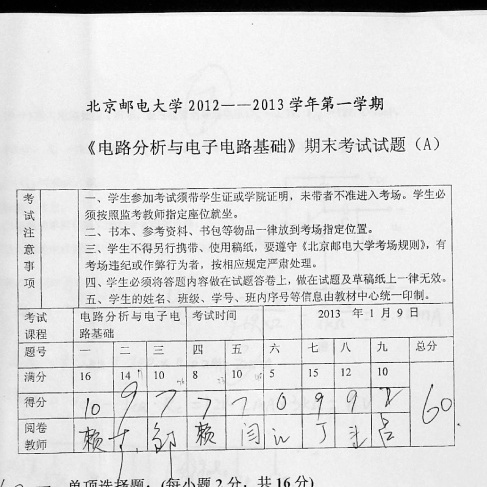 北京邮电大学2012——2013学年第一学期
《电路分析与电子电路基础》期末考试试题（A）
考试注意事项
一、学生参加考试须带学生证或学院证明，未带者不准进入考场。学生必
须按照监考教师指定座位就坐。
二、书本、参考资料、书包等物品一律放到考场指定位置。
三、学生不得另行携带、使用稿纸，要遵守《北京邮电大学考场规则》，有
考场违纪或作弊行为者，按相应规定严肃处理。
四、学生必须将答题内容做在试题答卷上，做在试题及草稿纸上一律无效。
五、学生的姓名、班级、学号、班内序号等信息由教材中心统一印制。
考试课程 电路分析与电子电路基础 考试时间 2013 年 1 月 9 日
题号 一 二 三 四 五 六 七 八 九 总分
满分 16 14 10 8 10 5 15 12 10
得分 10 9 7 7 7 0 9 9 2 60
阅卷教师 赖 邹 赖 闫 丁
一、单项选择题：(每小题 2 分，共 16 分)